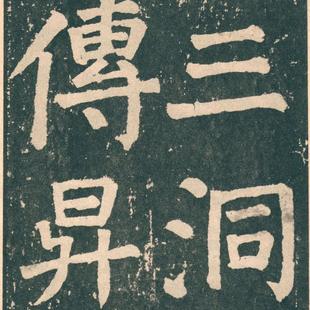 三洞
傳昇